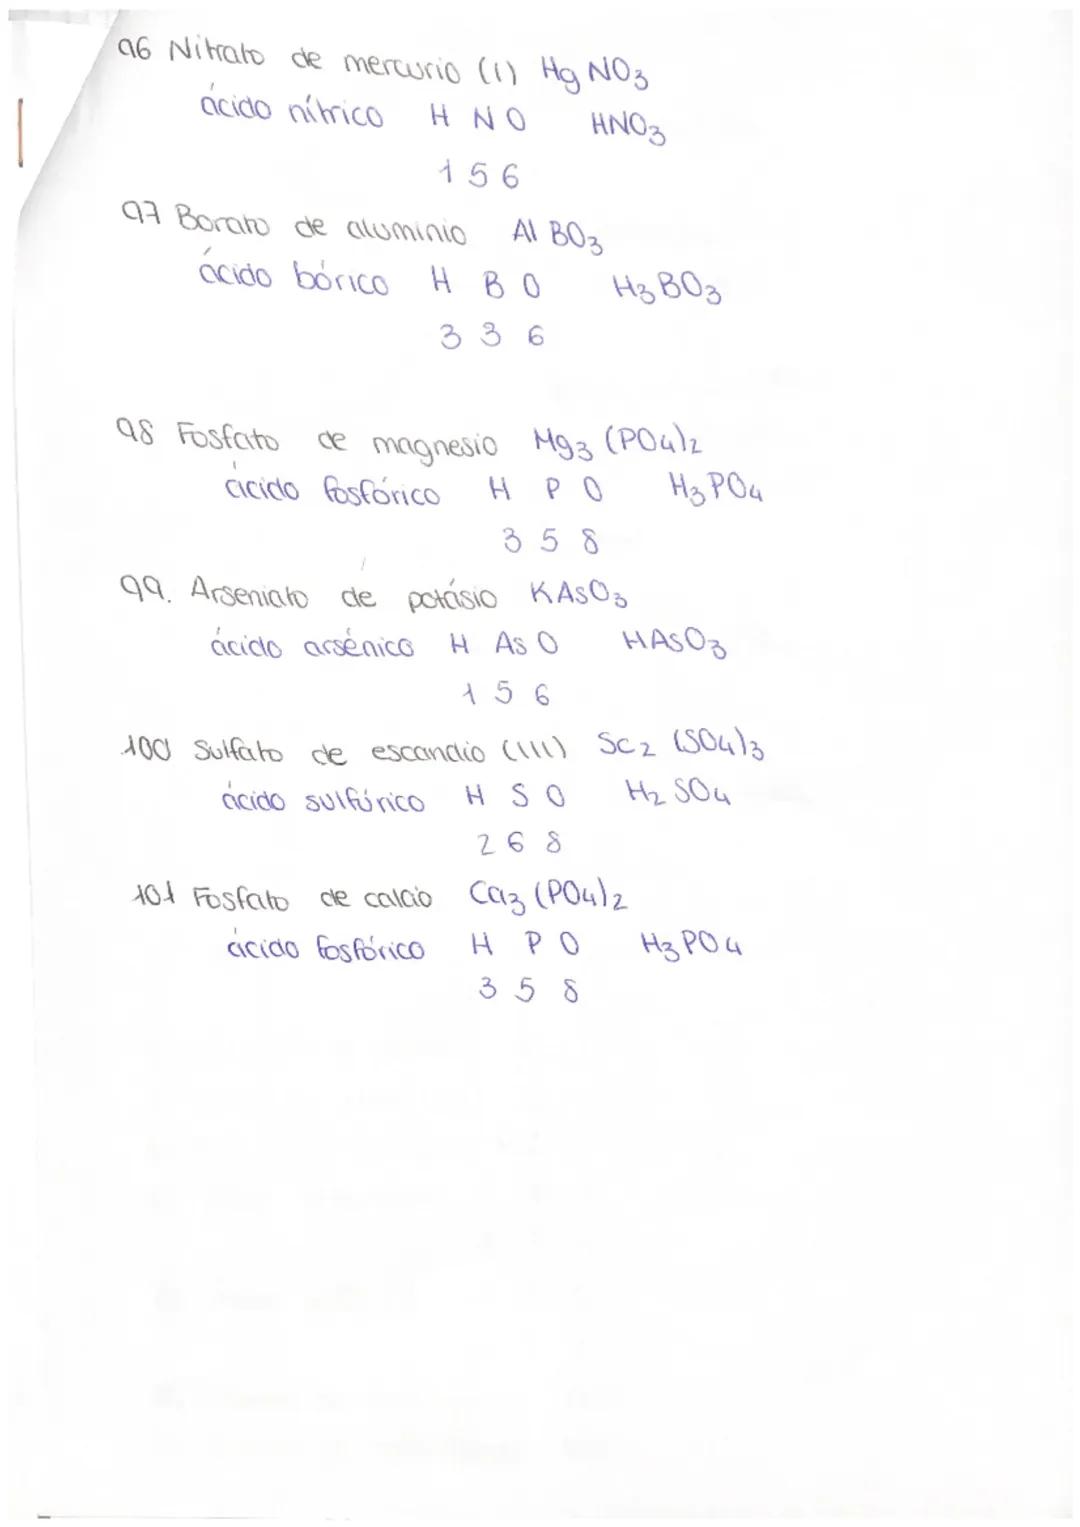 96 Nitrato de mercurio (I) Hg NO3
ácido nítrico H N O HNO3
1 5 6
97 Borato de aluminio Al BO3
ácido bórico H B O H3 BO3
3 3 6
98 Fosfato de magnesio Mg3 (PO4)2
ácido fosfórico H P O H3 PO4
3 5 8
99. Arseniato de potásio KAsO3
ácido arsénico H As O HAsO3
1 5 6
100 Sulfato de escandio (III) Sc2 (SO4)3
ácido sulfúrico H S O H2 SO4
2 6 8
101 Fosfato de calcio Ca3 (PO4)2
ácido fosfórico H P O H3 PO4
3 5 8